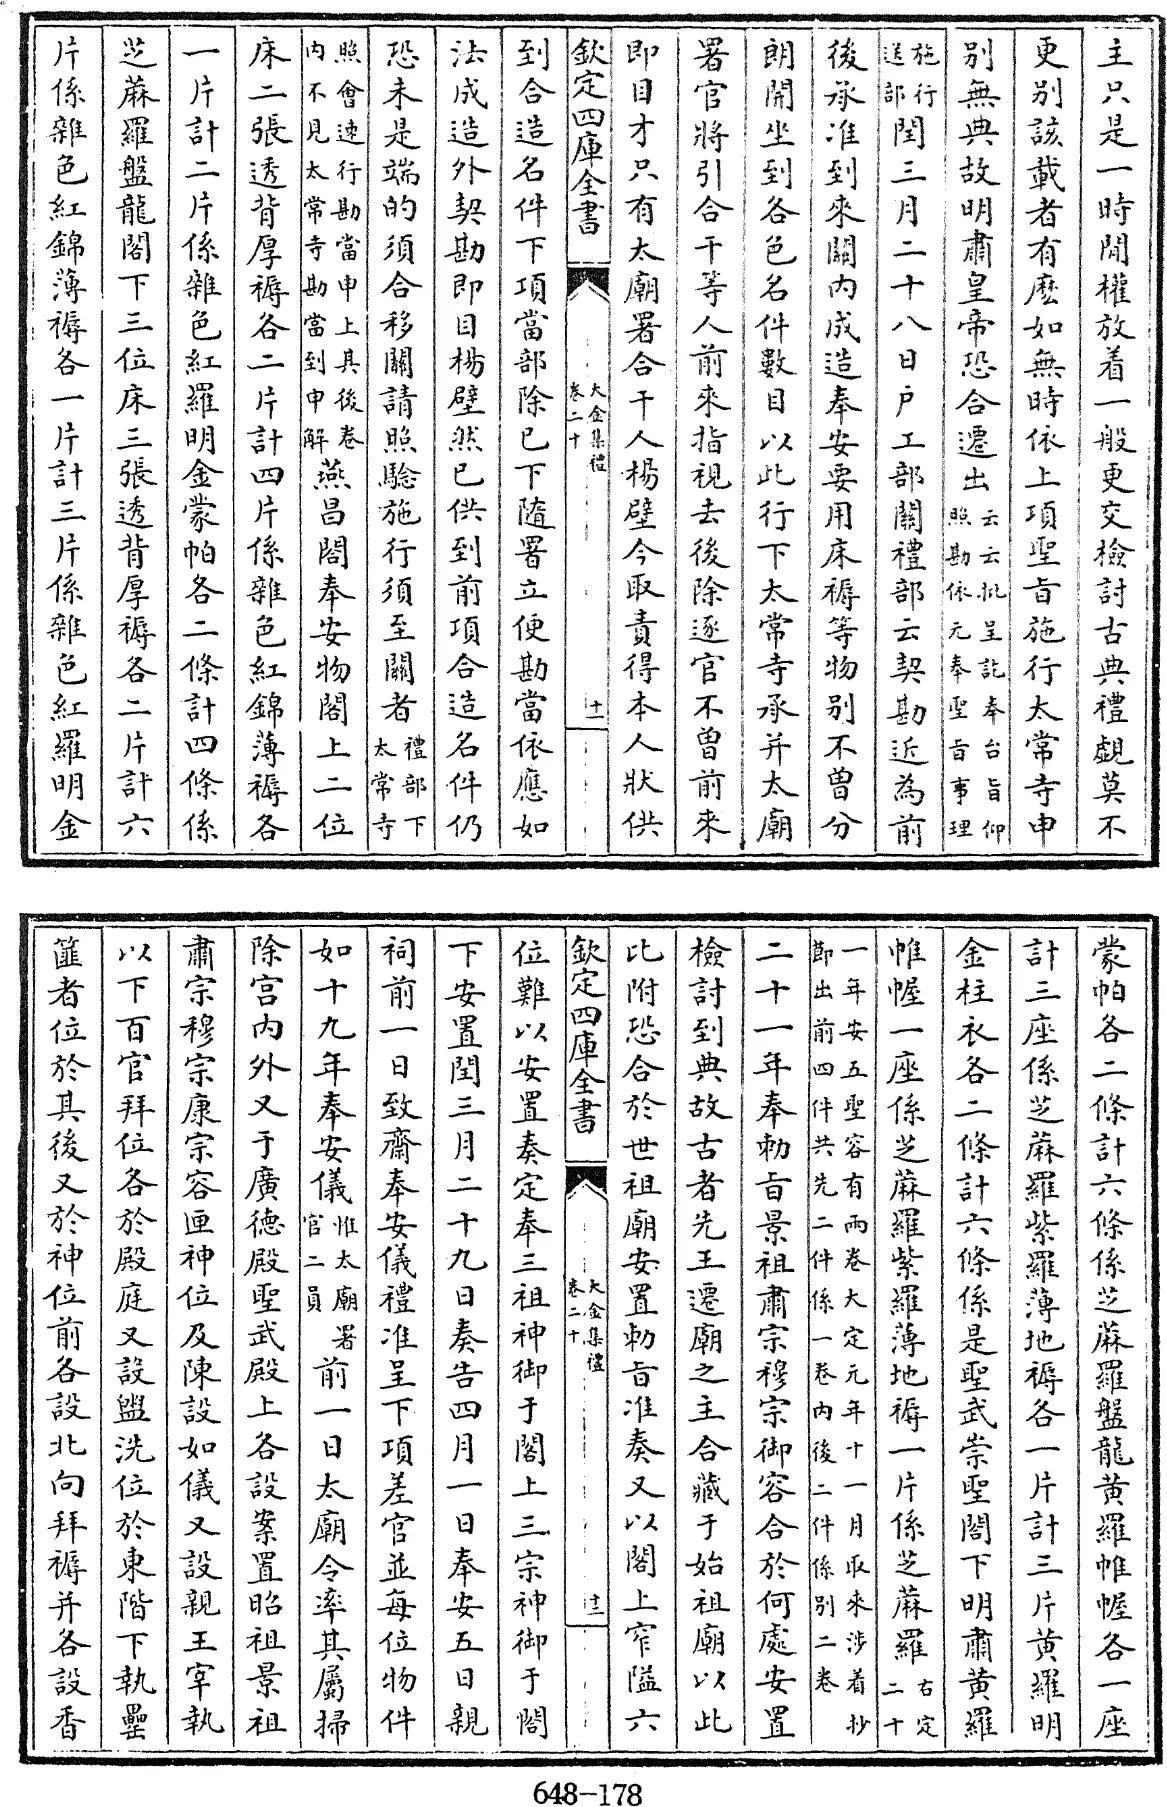 主只是一時閒權放着一般更交檢討古典禮覷莫不
更別該載者有麽如無時依上項聖旨施行太常寺申
別無典故明肅皇帝恐合遷出云云批呈訖奉台旨仰照勘依元奉聖旨事理
施行送部閏三月二十八日戶工部關禮部云契勘近為前
後承准到來關內成造奉安要用床褥等物別不曾分
朗開坐到各色名件數目以此行下太常寺承并太廟
署官將引合干等人前來指視去後除逐官不曾前來
即目才只有太廟署合干人楊壁今取責得本人狀供
欽定四庫全書
大金集禮
卷二十
十一
到合造名件下項當部除已下隨署立便勘當依應如
法成造外契勘即目楊壁然已供到前項合造名件仍
恐未是端的須合移關請照驗施行須至關者禮部下太常寺
照會速行勘當申上具後卷內不見太常寺勘當到申解燕昌閣奉安物閣上二位
床二張透背厚褥各二片計四片係雜色紅錦薄褥各
一片計二片係雜色紅羅明金蒙帕各二條計四條係
芝蔴羅盤龍閣下三位床三張透背厚褥各二片計六
片係雜色紅錦薄褥各一片計三片係雜色紅羅明金
蒙帕各二條計六條係芝蔴羅盤龍黃羅帷幄各一座
計三座係芝蔴羅紫羅薄地褥各一片計三片黃羅明
金柱衣各二條計六條係是聖武崇聖閣下明肅黃羅
帷幄一座係芝蔴羅紫羅薄地褥一片係芝蔴羅右定二十
一年安五聖容有兩卷大定元年十一月取來涉着抄節出前四件共先二件係一卷內後二件係別二卷
二十一年奉勅旨景祖肅宗穆宗御容合於何處安置
檢討到典故古者先王遷廟之主合藏于始祖廟以此
比附恐合於世祖廟安置勅旨准奏又以閣上窄隘六
欽定四庫全書
大金集禮
卷二十
十二
位難以安置奏定奉三祖神御于閣上三宗神御于閣
下安置閏三月二十九日奏告四月一日奉安五日親
祠前一日致齋奉安儀禮准呈下項差官並每位物件
如十九年奉安儀惟太廟署官二員前一日太廟令率其屬掃
除宮內外又于廣德殿聖武殿上各設案置昭祖景祖
肅宗穆宗康宗容匣神位及陳設如儀又設親王宰執
以下百官拜位各於殿庭又設盥洗位於東階下執罍
篚者位於其後又於神位前各設北向拜褥并各設香
648-178